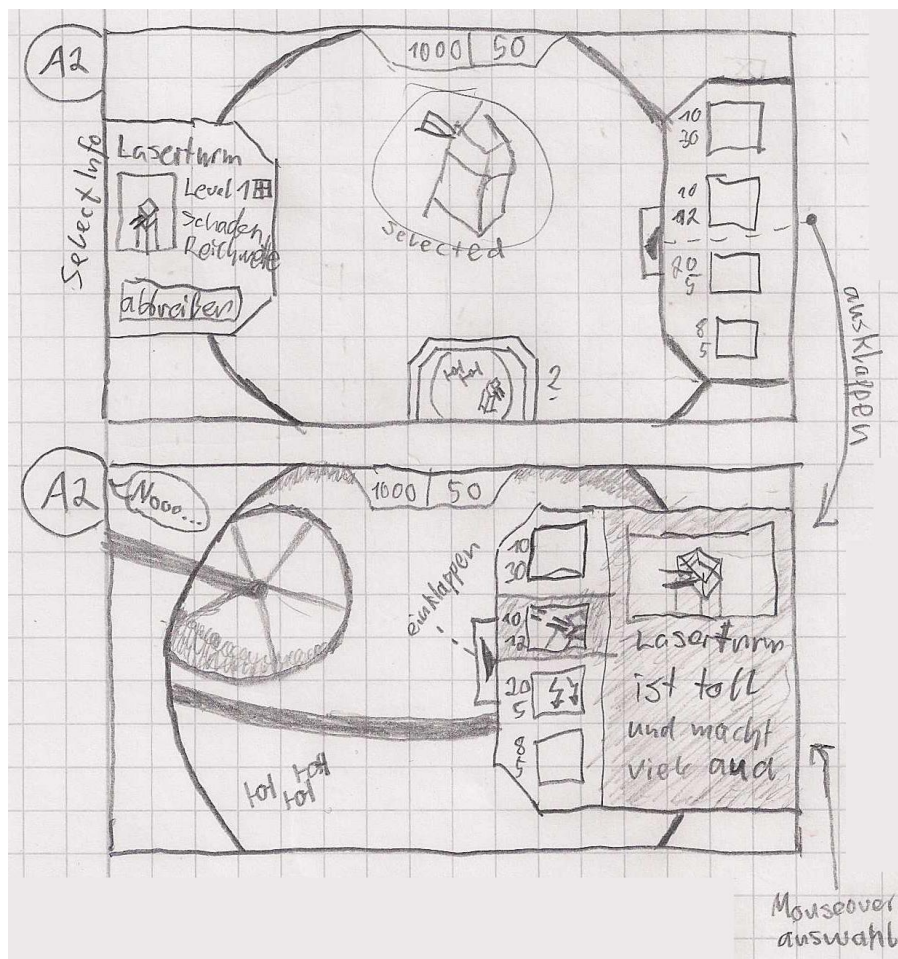 A2
1000 50
Select Info
Laserturm
Level 1
Schaden
Reichweite
abreißen
selected
10
30
10
12
20
5
8
5
ausklappen
2
A2
Nooo...
1000 50
einklappen
10
30
10
12
20
5
8
5
Laserturm
ist toll
und macht
viel aua
Mouseover
auswahl